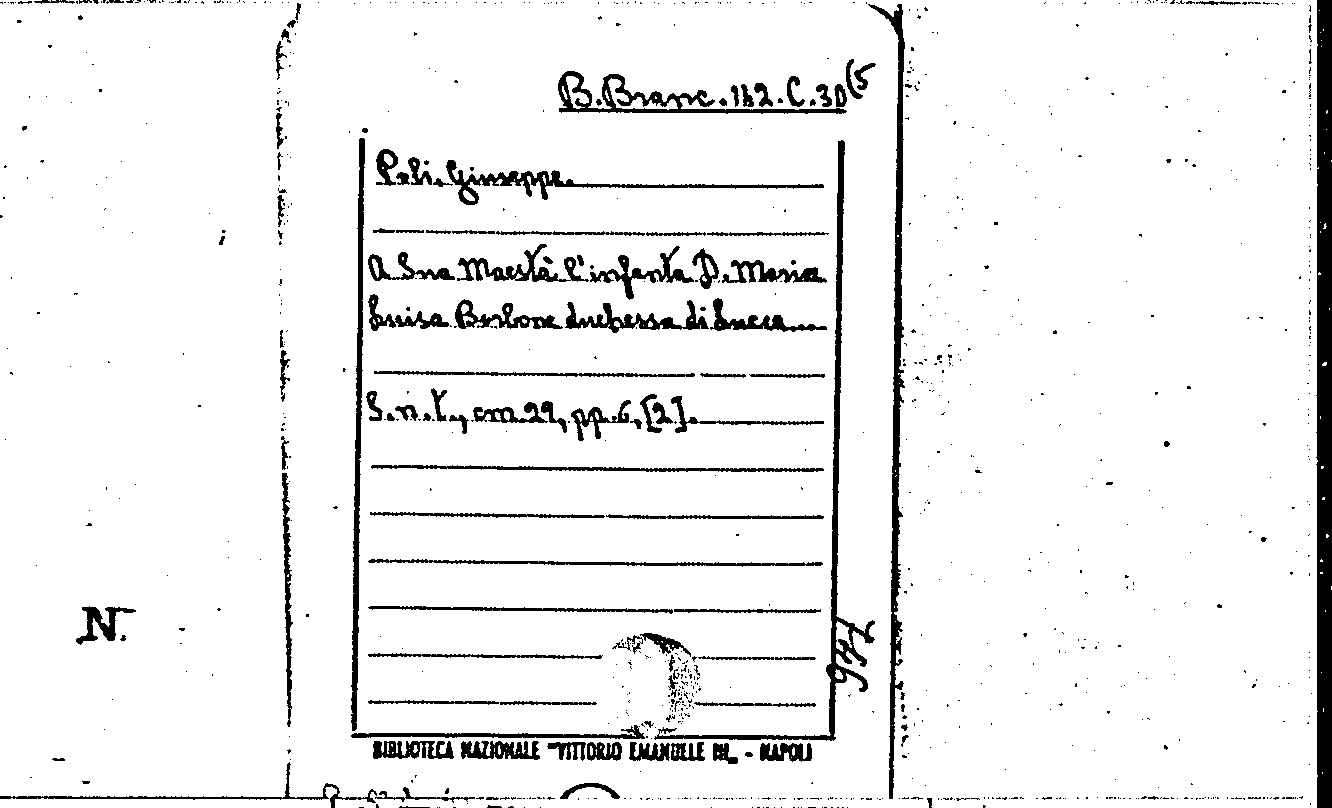 B. Branc. 142. C. 30(5
Peli. Giuseppe.
A Sua Maestà l'infanta D. Maria
Luisa Borbone duchessa di Lucca...
S.n.t., cm. 29, pp. 6, [2].
N.
BIBLIOTECA NAZIONALE "VITTORIO EMANUELE III„ - NAPOLI